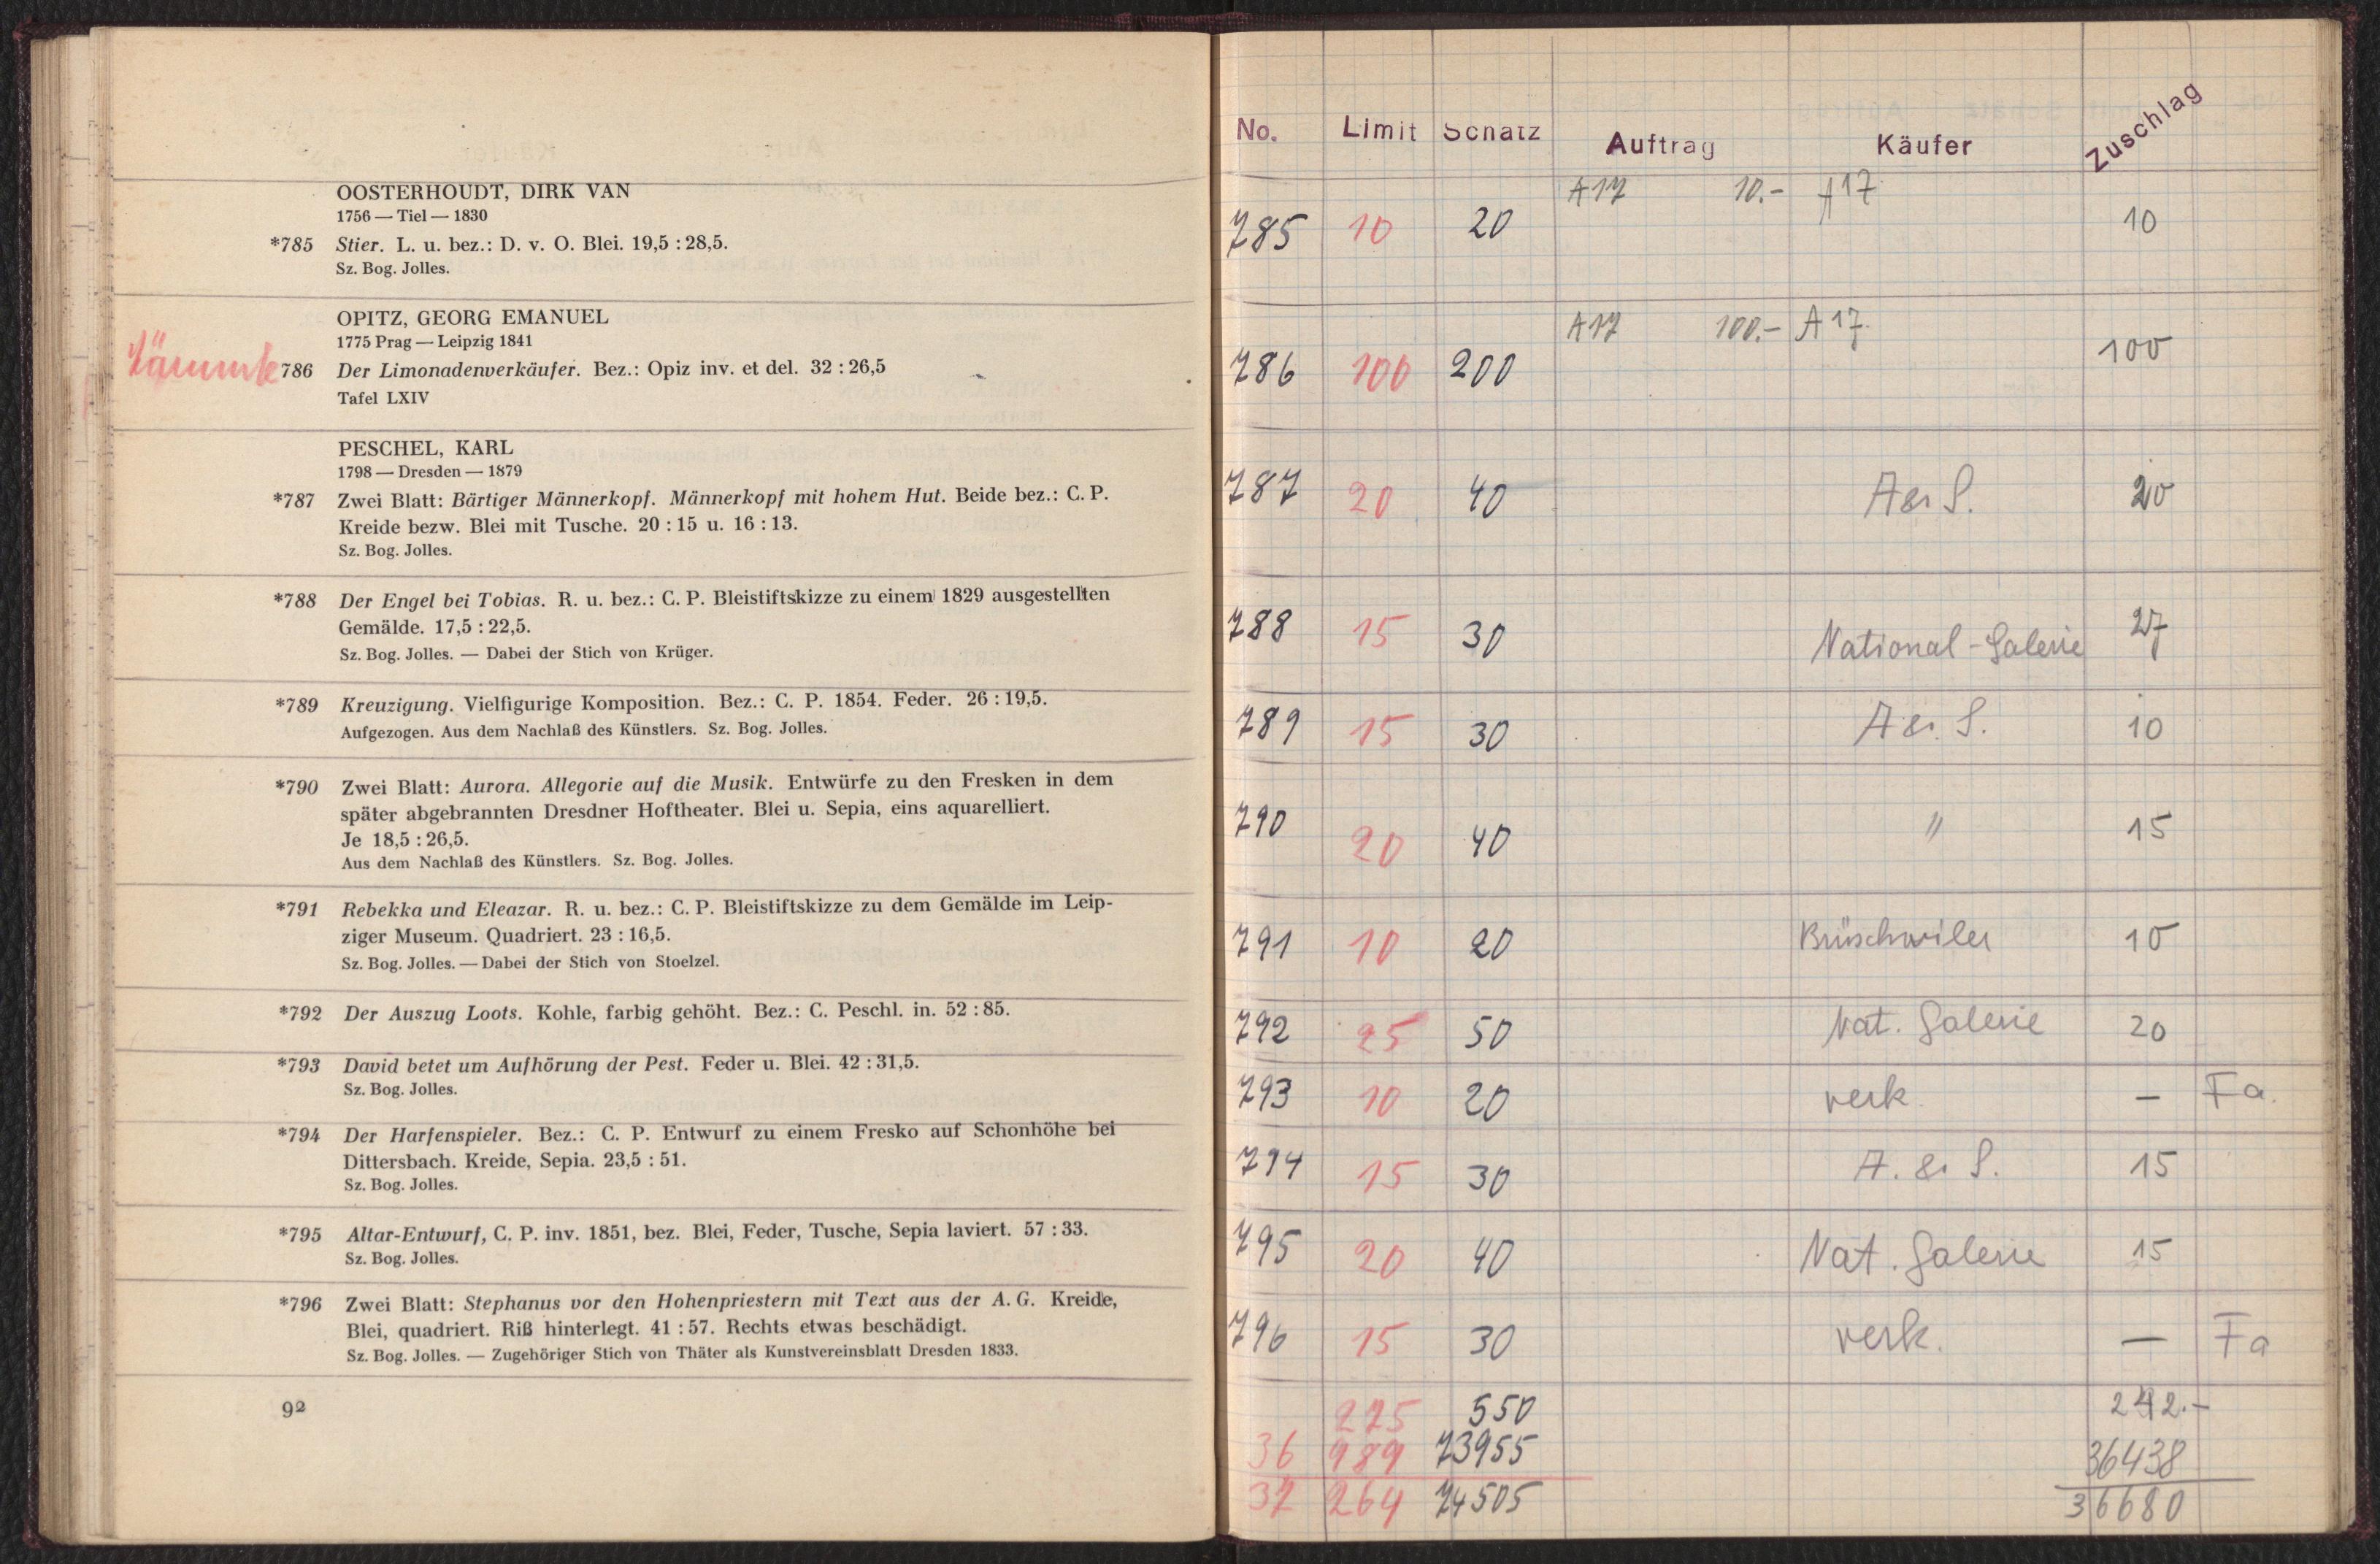 OOSTERHOUDT, DIRK VAN
1756 — Tiel — 1830
*785 Stier. L. u. bez.: D. v. O. Blei. 19,5 : 28,5.
Sz. Bog. Jolles.
OPITZ, GEORG EMANUEL
1775 Prag — Leipzig 1841
786 Der Limonadenverkäufer. Bez.: Opiz inv. et del. 32 : 26,5
Tafel LXIV
PESCHEL, KARL
1798 — Dresden — 1879
*787 Zwei Blatt: Bärtiger Männerkopf. Männerkopf mit hohem Hut. Beide bez.: C. P.
Kreide bezw. Blei mit Tusche. 20 : 15 u. 16 : 13.
Sz. Bog. Jolles.
*788 Der Engel bei Tobias. R. u. bez.: C. P. Bleistiftskizze zu einem 1829 ausgestellten
Gemälde. 17,5 : 22,5.
Sz. Bog. Jolles. — Dabei der Stich von Krüger.
*789 Kreuzigung. Vielfigurige Komposition. Bez.: C. P. 1854. Feder. 26 : 19,5.
Aufgezogen. Aus dem Nachlaß des Künstlers. Sz. Bog. Jolles.
*790 Zwei Blatt: Aurora. Allegorie auf die Musik. Entwürfe zu den Fresken in dem
später abgebrannten Dresdner Hoftheater. Blei u. Sepia, eins aquarelliert.
Je 18,5 : 26,5.
Aus dem Nachlaß des Künstlers. Sz. Bog. Jolles.
*791 Rebekka und Eleazar. R. u. bez.: C. P. Bleistiftskizze zu dem Gemälde im Leip-
ziger Museum. Quadriert. 23 : 16,5.
Sz. Bog. Jolles. — Dabei der Stich von Stoelzel.
*792 Der Auszug Loots. Kohle, farbig gehöht. Bez.: C. Peschl. in. 52 : 85.
*793 David betet um Aufhörung der Pest. Feder u. Blei. 42 : 31,5.
Sz. Bog. Jolles.
*794 Der Harfenspieler. Bez.: C. P. Entwurf zu einem Fresko auf Schonhöhe bei
Dittersbach. Kreide, Sepia. 23,5 : 51.
Sz. Bog. Jolles.
*795 Altar-Entwurf, C. P. inv. 1851, bez. Blei, Feder, Tusche, Sepia laviert. 57 : 33.
Sz. Bog. Jolles.
*796 Zwei Blatt: Stephanus vor den Hohenpriestern mit Text aus der A. G. Kreide,
Blei, quadriert. Riß hinterlegt. 41 : 57. Rechts etwas beschädigt.
Sz. Bog. Jolles. — Zugehöriger Stich von Thäter als Kunstvereinsblatt Dresden 1833.
92
No. Limit Schatz Auftrag Käufer Zuschlag
785 10 20 A17 10.- A17 10
786 100 200 A17 100.- A17. 100
787 20 40 A & S. 20
788 15 30 National-Galerie 27
789 15 30 A & S. 10
790 20 40 " 15
791 10 20 Brüschwiler 10
792 25 50 Nat. Galerie 20
793 10 20 verk. — Fa.
794 15 30 A. & S. 15
795 20 40 Nat. Galerie 15
796 15 30 verk. — Fa
275 550 242.-
36 989 73955 36438
37 264 74505 36680